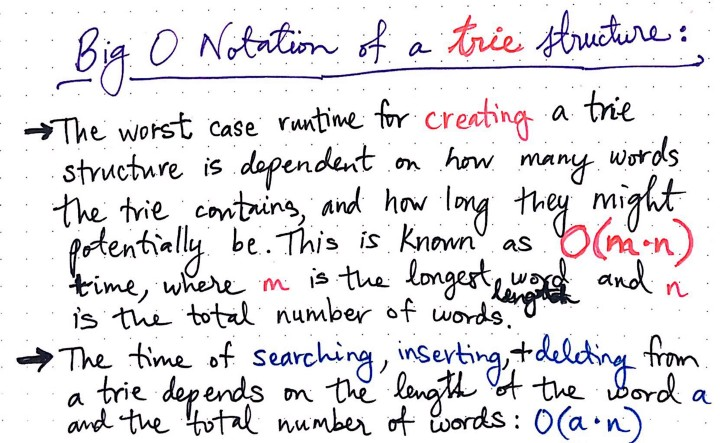 Big O Notation of a trie structure:
→ The worst case runtime for creating a trie
structure is dependent on how many words
the trie contains, and how long they might
potentially be. This is known as O(m·n)
time, where m is the longest word and n
is the total number of words.
→ The time of searching, inserting, + deleting from
a trie depends on the length of the word a
and the total number of words: O(a·n)